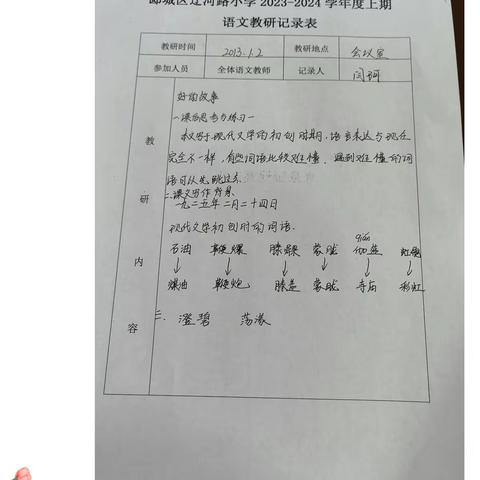 郾城区辽河路小学2023-2024学年度上期
语文教研记录表
教研时间 2013.1.2 教研地点 会议室
参加人员 全体语文教师 记录人 闫珂
教研内容
好的故事
一课后思考与练习一
本文写于现代文学的初创时期,语言表达与现在
完全不一样,有些词语比较难懂,遇到难懂的词
语可以先跳过去.
二.课文写作背景.
一九二五年二月二十四日
现代文学初创时的词语.
石油 鞭爆 膝髁 蒙胧 伽蓝 虹霓
煤油 鞭炮 膝盖 蒙胧 寺庙 彩虹
三、澄碧 荡漾